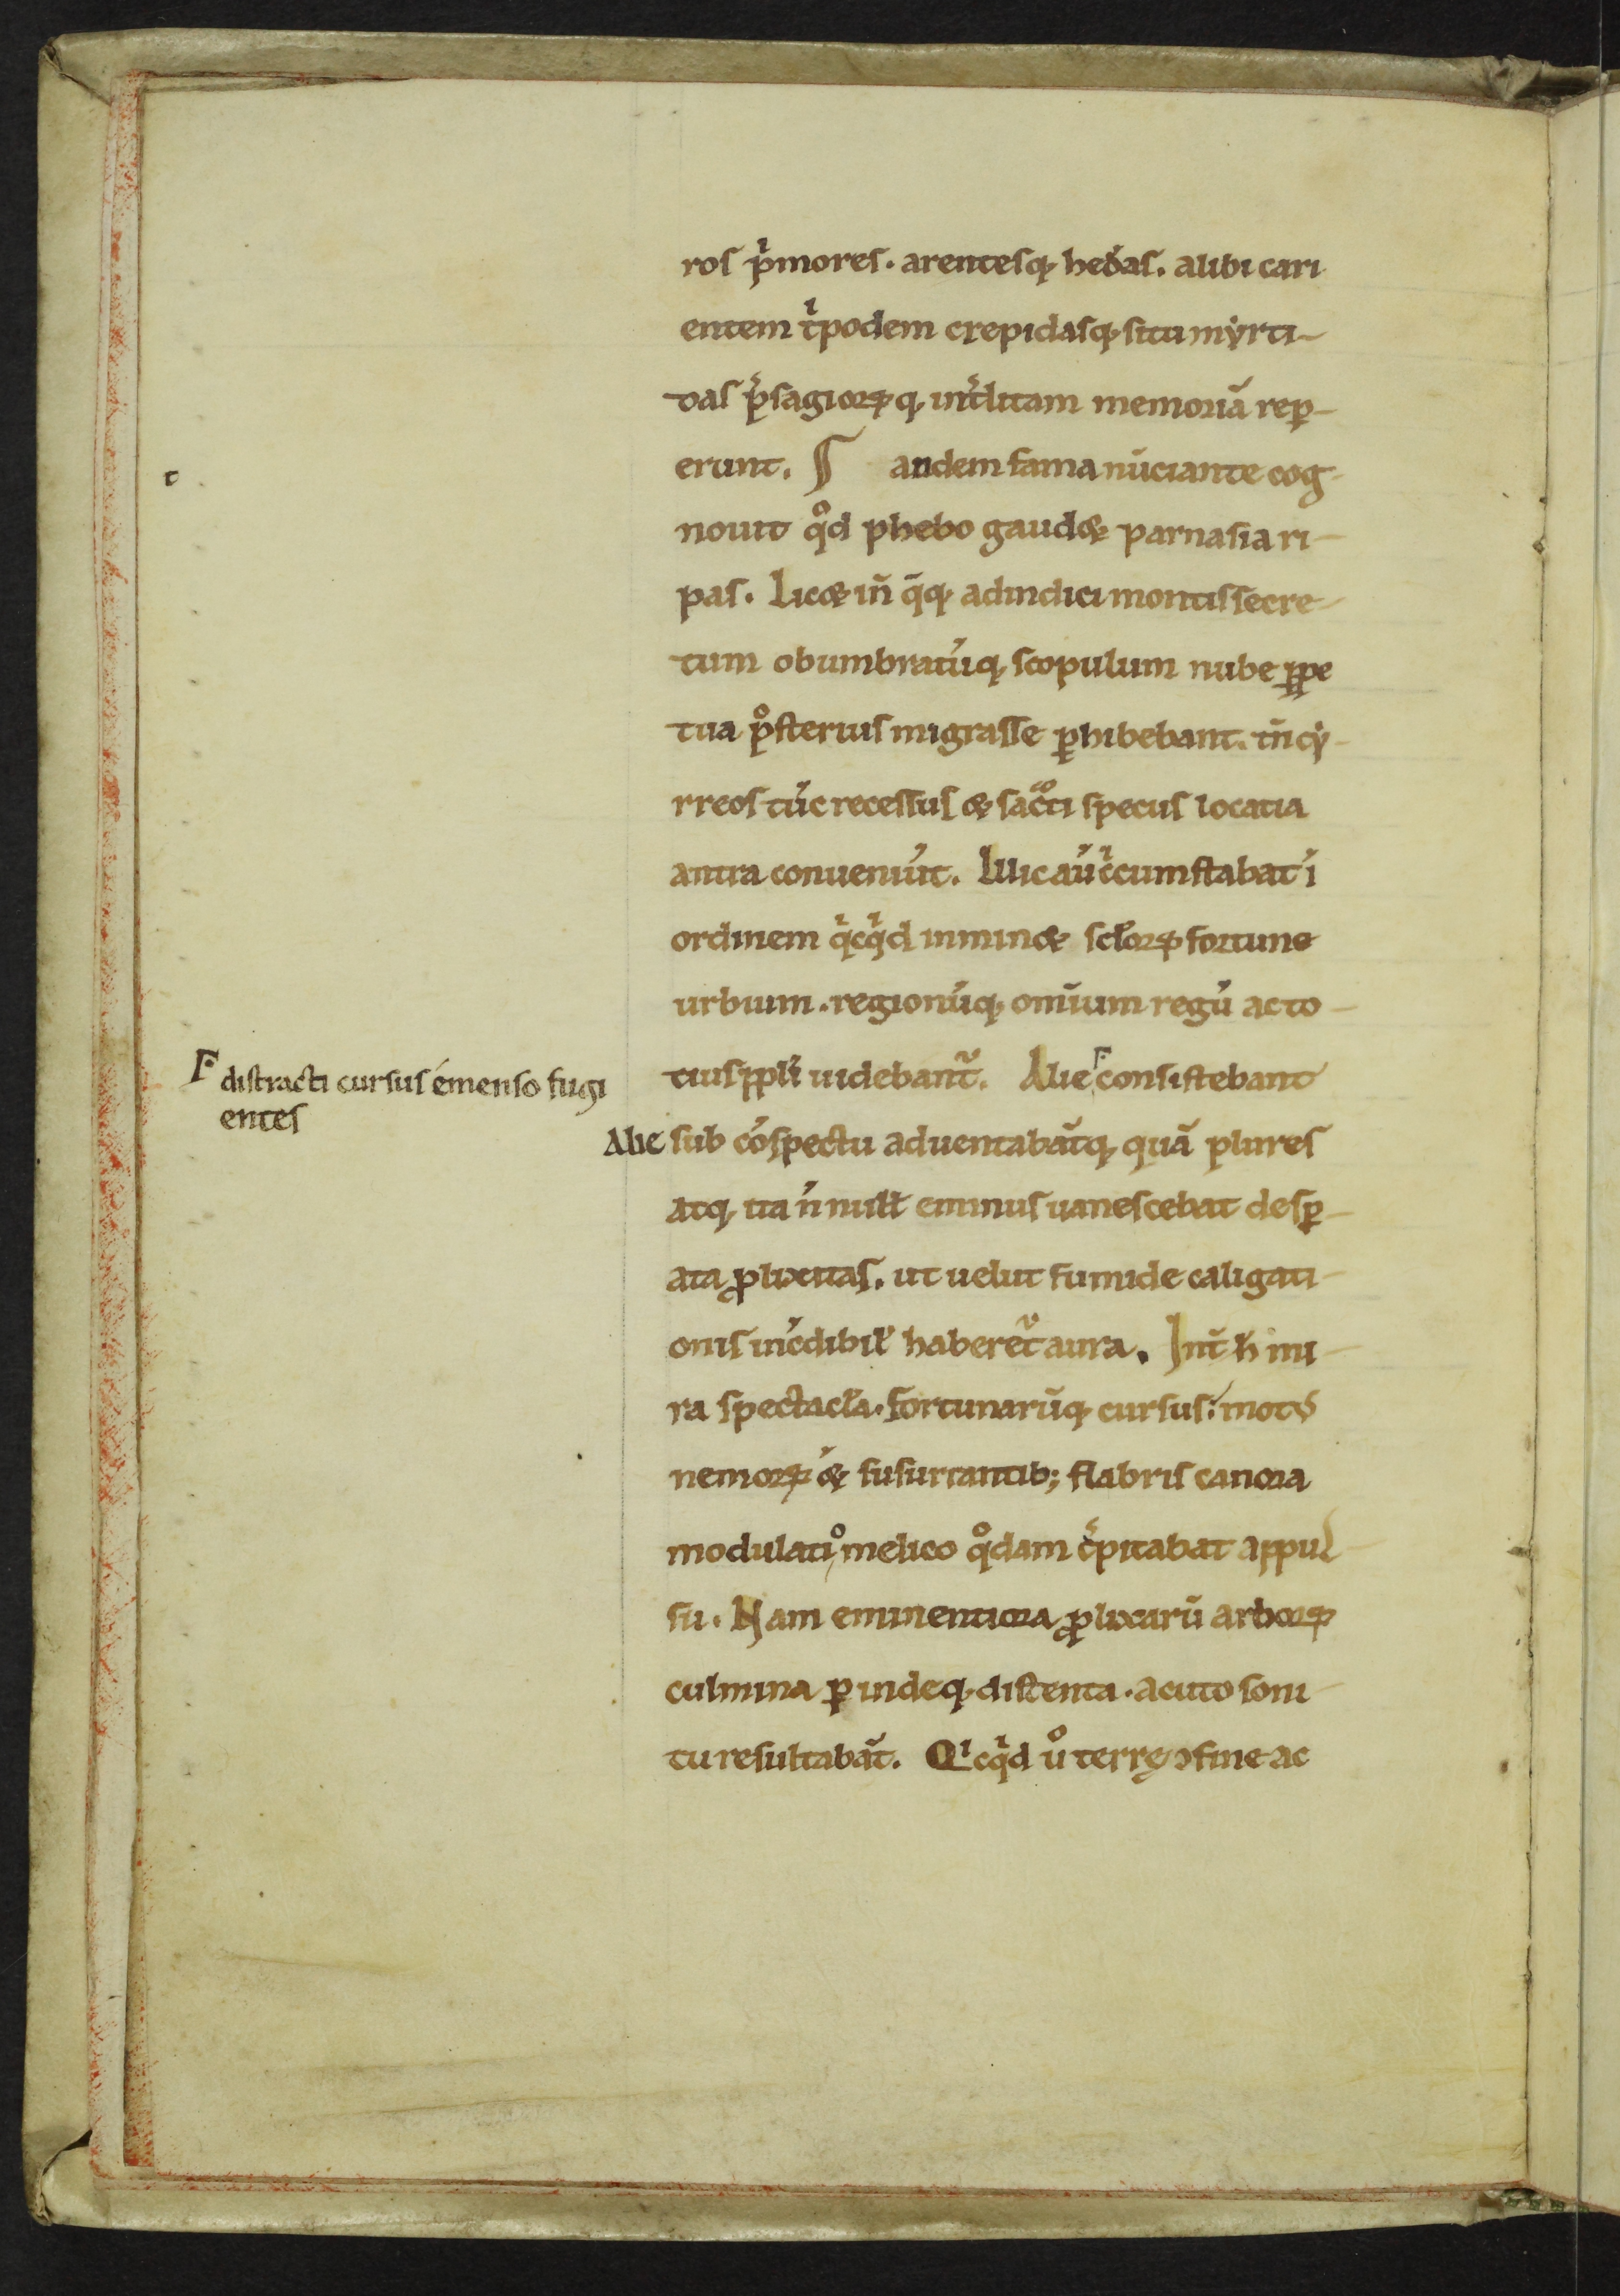 ros pͥmores. arentesq; hedͥas. alibi cari
entem tͥpodem crepidasq; situ myrti-
das p̄sagioꝝq; int̄litam memoriā rep̱-
t
erunt. ⸿ andem fama nūciante cog-
nouit qͦd phebo gaud& parnasia ri-
pas. Lic& iñ q̄q; ad indici montis secre-
tum obumbratūq; scopulum nube ꝑpe
tua pͦsterius migrasse ꝑhibebant. tñ cẏ-
rreos tūc recessus & sac̄ͦti specus locatia
antra conueniūt. Illic aū cͥcumstabat ī
ordinem qͥcqͥd inmin& sc̄loꝝ fortune
urbium. regionūq; omīum regū ac to-
tius ppłi uidebant᷑. Alie F consistebant
F distracti cursus emenso fugi
entes
Alie sub cōspectu aduentabāt́q; quā plures
atq; ita ń nułł eminus uanescebat desꝑ-
ata ꝓlixitas. ut uelut fumide caligati-
onis inc̄dibił haberet᷑ aura. Int̄ ħ mi-
ra spectacła. fortunarūq; cursus: motꝰ
nemoꝝ ē& susurrantib; flabris canora
modulatiͦ melico qͦdam c̄pitabat appul-
su. Nam eminentiora ꝓlixarū arboꝝ
culmina ꝑindeq; distenta. acuto soni-
tu resultabāt. Qͥcqͥd uͦ terrę ↄfine ac